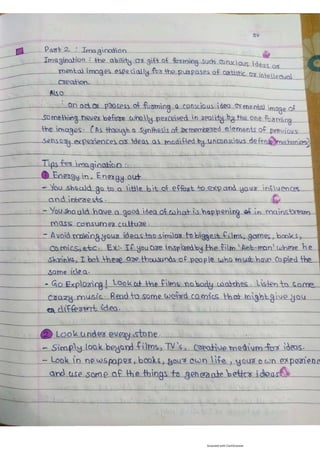 Part 2 : Imagination
Imagination : the ability or gift of forming such conscious ideas or
mental images especially for the purposes of artistic or intellectual
creation.
Also
An act or process of forming a conscious idea or mental image of
something never before wholly perceived in reality by the one forming
the images. (As through a synthesis of remembered elements of previous
sensory experiences or ideas as modified by unconscious defense mechanisms)
Tips for Imagination :-
1 Energy In, Energy out
- You should go to a little bit of effort to expand your influences
and interests.
- You should have a good idea of what is happening in mainstream
mass consumer culture
- Avoid making your ideas too similar to biggest films, games, books,
comics, etc. Ex:- If you are inspired by the film 'Ant-man' where he
shrinks, I bet there are thousands of people who must have copied the
same idea.
- Go Exploring! Look at the films nobody watches. Listen to some
crazy music. Read to some weird comics that might give you
a different idea.
2 Look under every stone
- Simply look beyond films, TV's, creative medium for ideas.
- Look in newspaper, books, your own life, your own experience
and use some of the things to generate better ideas
Scanned with CamScanner